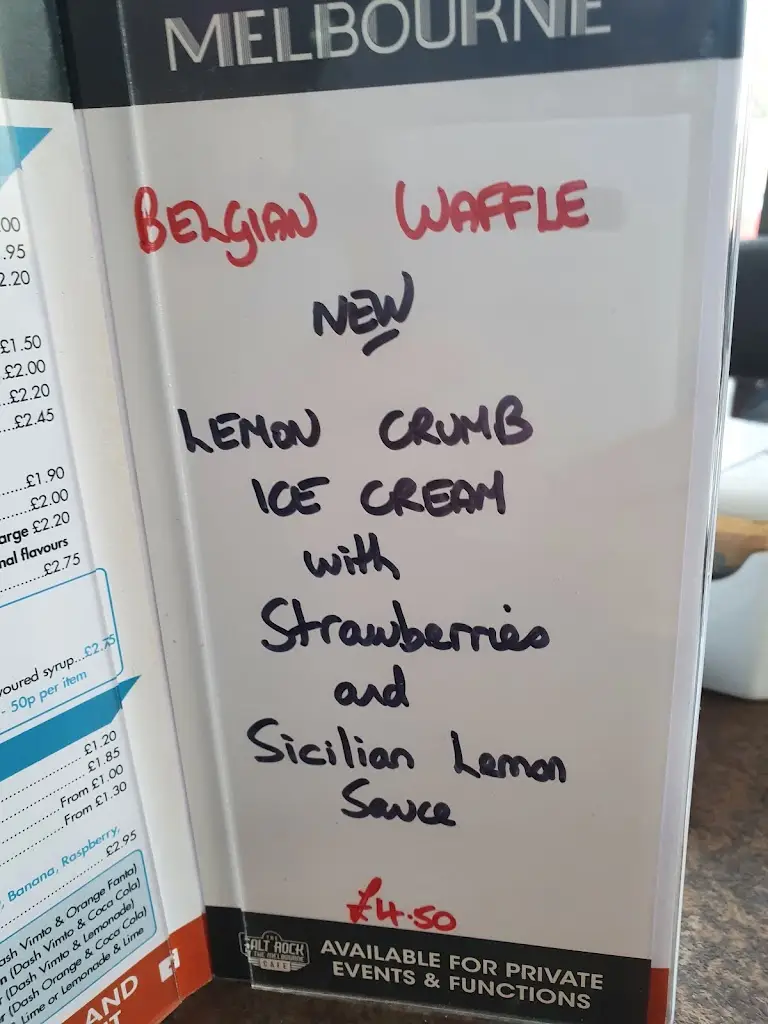 MELBOURNE
BELGIAN WAFFLE
NEW
LEMON CRUMB
ICE CREAM
with
Strawberries
and
Sicilian Lemon
Sauce
£4.50
THE
ALT ROCK
THE MELBOURNE
CAFE
AVAILABLE FOR PRIVATE
EVENTS & FUNCTIONS
.00
.95
2.20
£1.50
£2.00
£2.20
£2.45
£1.90
£2.00
arge £2.20
nal flavours
£2.75
voured syrup...£2.75
- 50p per item
£1.20
£1.85
From £1.00
From £1.30
, Banana, Raspberry,
£2.95
ash Vimto & Orange Fanta)
n (Dash Vimto & Coca Cola)
r (Dash Vimto & Lemonade)
(Dash Orange & Coca Cola)
Lime or Lemonade & Lime
AND